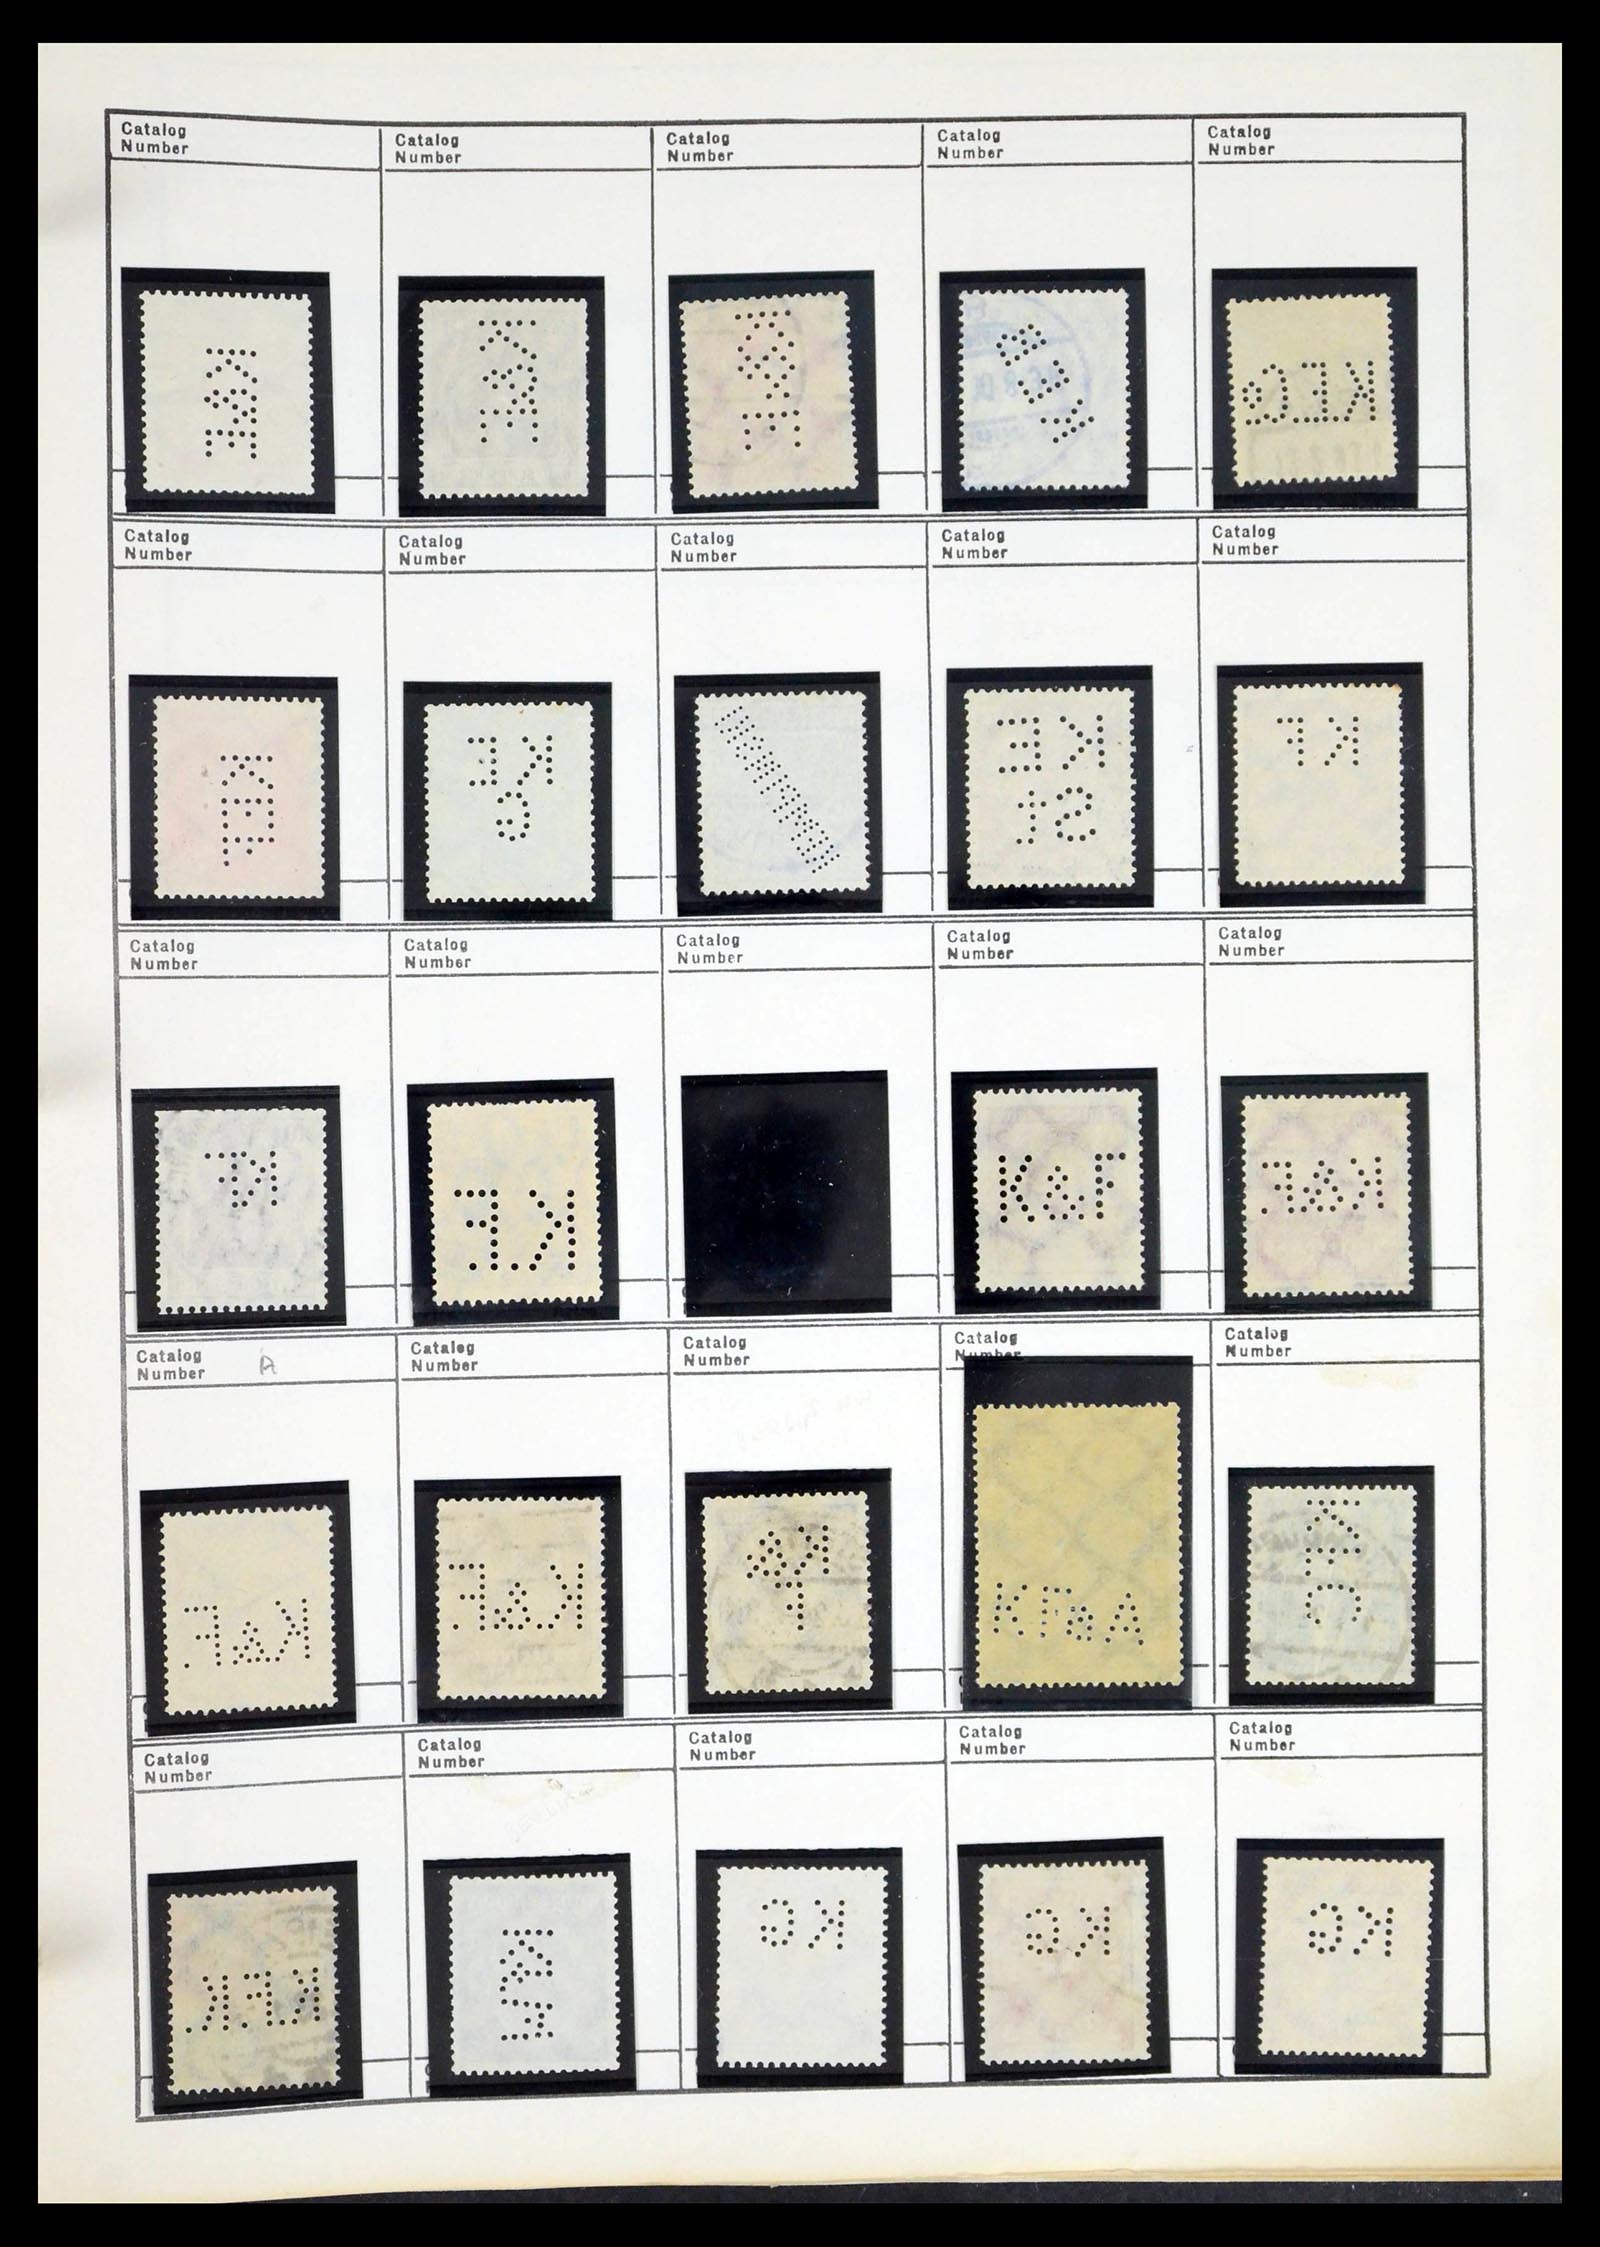 Catalog Number
Catalog Number
Catalog Number
Catalog Number
Catalog Number
K&E
Catalog Number
Catalog Number
Catalog Number
Catalog Number
Catalog Number
KEF
KE
G
KE
ST
KF
Catalog Number
Catalog Number
Catalog Number
Catalog Number
Catalog Number
KF
K.F.
K&F
K&F
Catalog Number A
Catalog Number
Catalog Number
Catalog Number
Catalog Number
K&F.
K&F.
K&
F
KF&A
KFC
Catalog Number
Catalog Number
Catalog Number
Catalog Number
Catalog Number
K.F.K.
KG
KG
KG